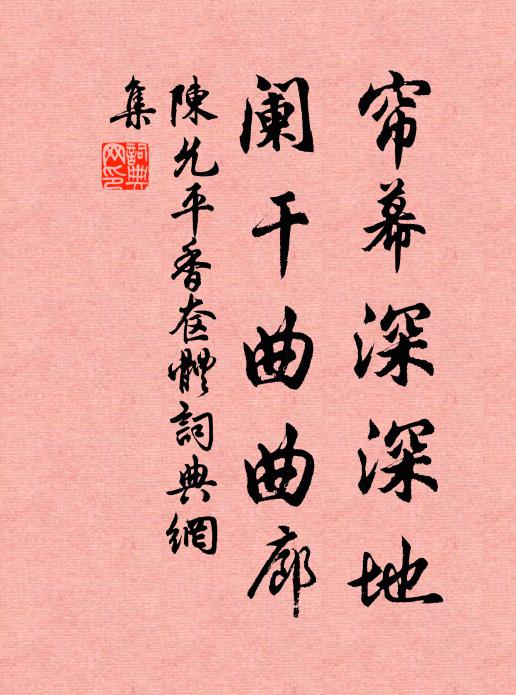 帘幕深深地
阑干曲曲廊
陳允平香奁體詞典網
集
詞典
网印